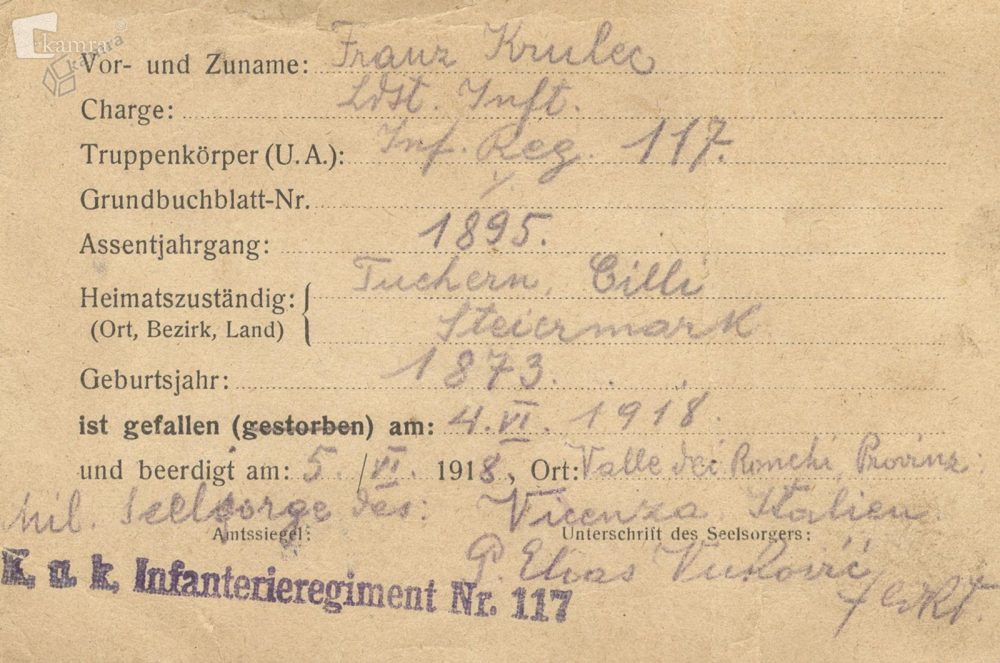 kamra
kamra
Vor- und Zuname: Franz Krulec
Charge: Ldst. Inft.
Truppenkörper (U. A.): Inf. Reg. 117.
Grundbuchblatt-Nr. /
Assentjahrgang: 1895.
Heimatszuständig: Tuchern, Cilli
(Ort, Bezirk, Land) Steiermark
Geburtsjahr: 1873.
ist gefallen (gestorben) am: 4. VI. 1918.
und beerdigt am: 5. / VI. 1918, Ort: Valle dei Ronchi, Provinz:
Mil. Seelsorge des: Vicenza, Italien.
Amtssiegel: Unterschrift des Seelsorgers:
K. u. k. Infanterieregiment Nr. 117
P. Vuković